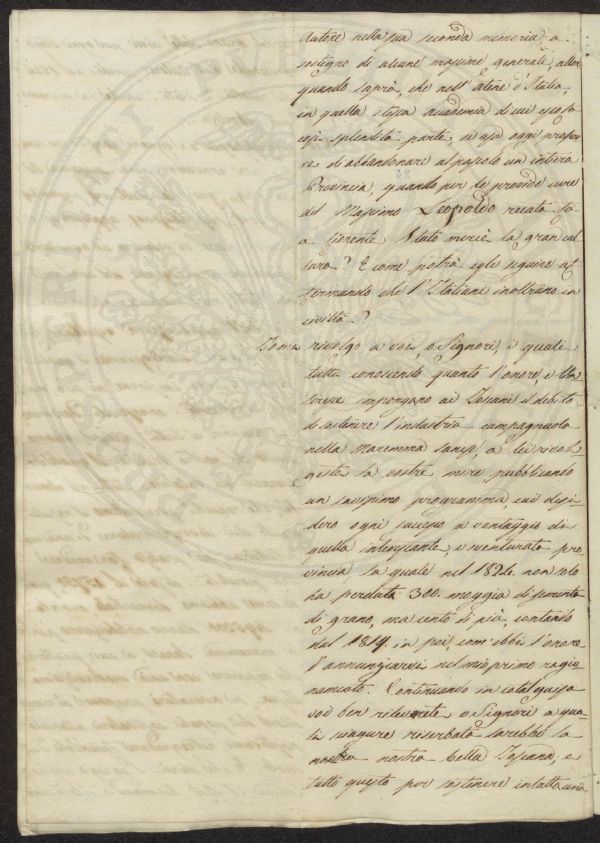 datore nella sua seconda memoria a
sostegno di alcune massime generali, allor
quando saprà, che nell'atene d'Italia,
in quella stessa academia di cui egli fa
così splendida parte, si osa oggi preferi
re di abbandonare al pascolo un intiera
Provincia, quando per le provide cure
del Massimo Leopoldo recata fù
a fiorente stato mercè la gran cul
tura? E come potrà egli seguire af
fermando che l'Italiani inoltrano in
civiltà?
Io mi rivolgo a voi, o Signori, i quali
tutti conoscendo quanto l'onore, e
impongono ai Toscani il debito
di sostenere l'industria campagnuola
nella Maremma sanese, a lei rivol
geste le vostre mire, pubblicando
un savissimo programma, cui desi
dero ogni successo a vantaggio di
quella interessante, e sventurata pro
vincia, la quale nel 1824. non solo
ha perduta 300. moggia di sementa
di grano, ma cento di più, contando
dal 1819. in poi, com'ebbi l'onore
d'annunziarvi nel mio primo ragio
namento. Continuando in cotal guisa
voi ben rilevate, o Signori a qua
li sciagure riserbata sarebbe la
nostra bella Toscana, e
tutto questo per sostenere intatta una